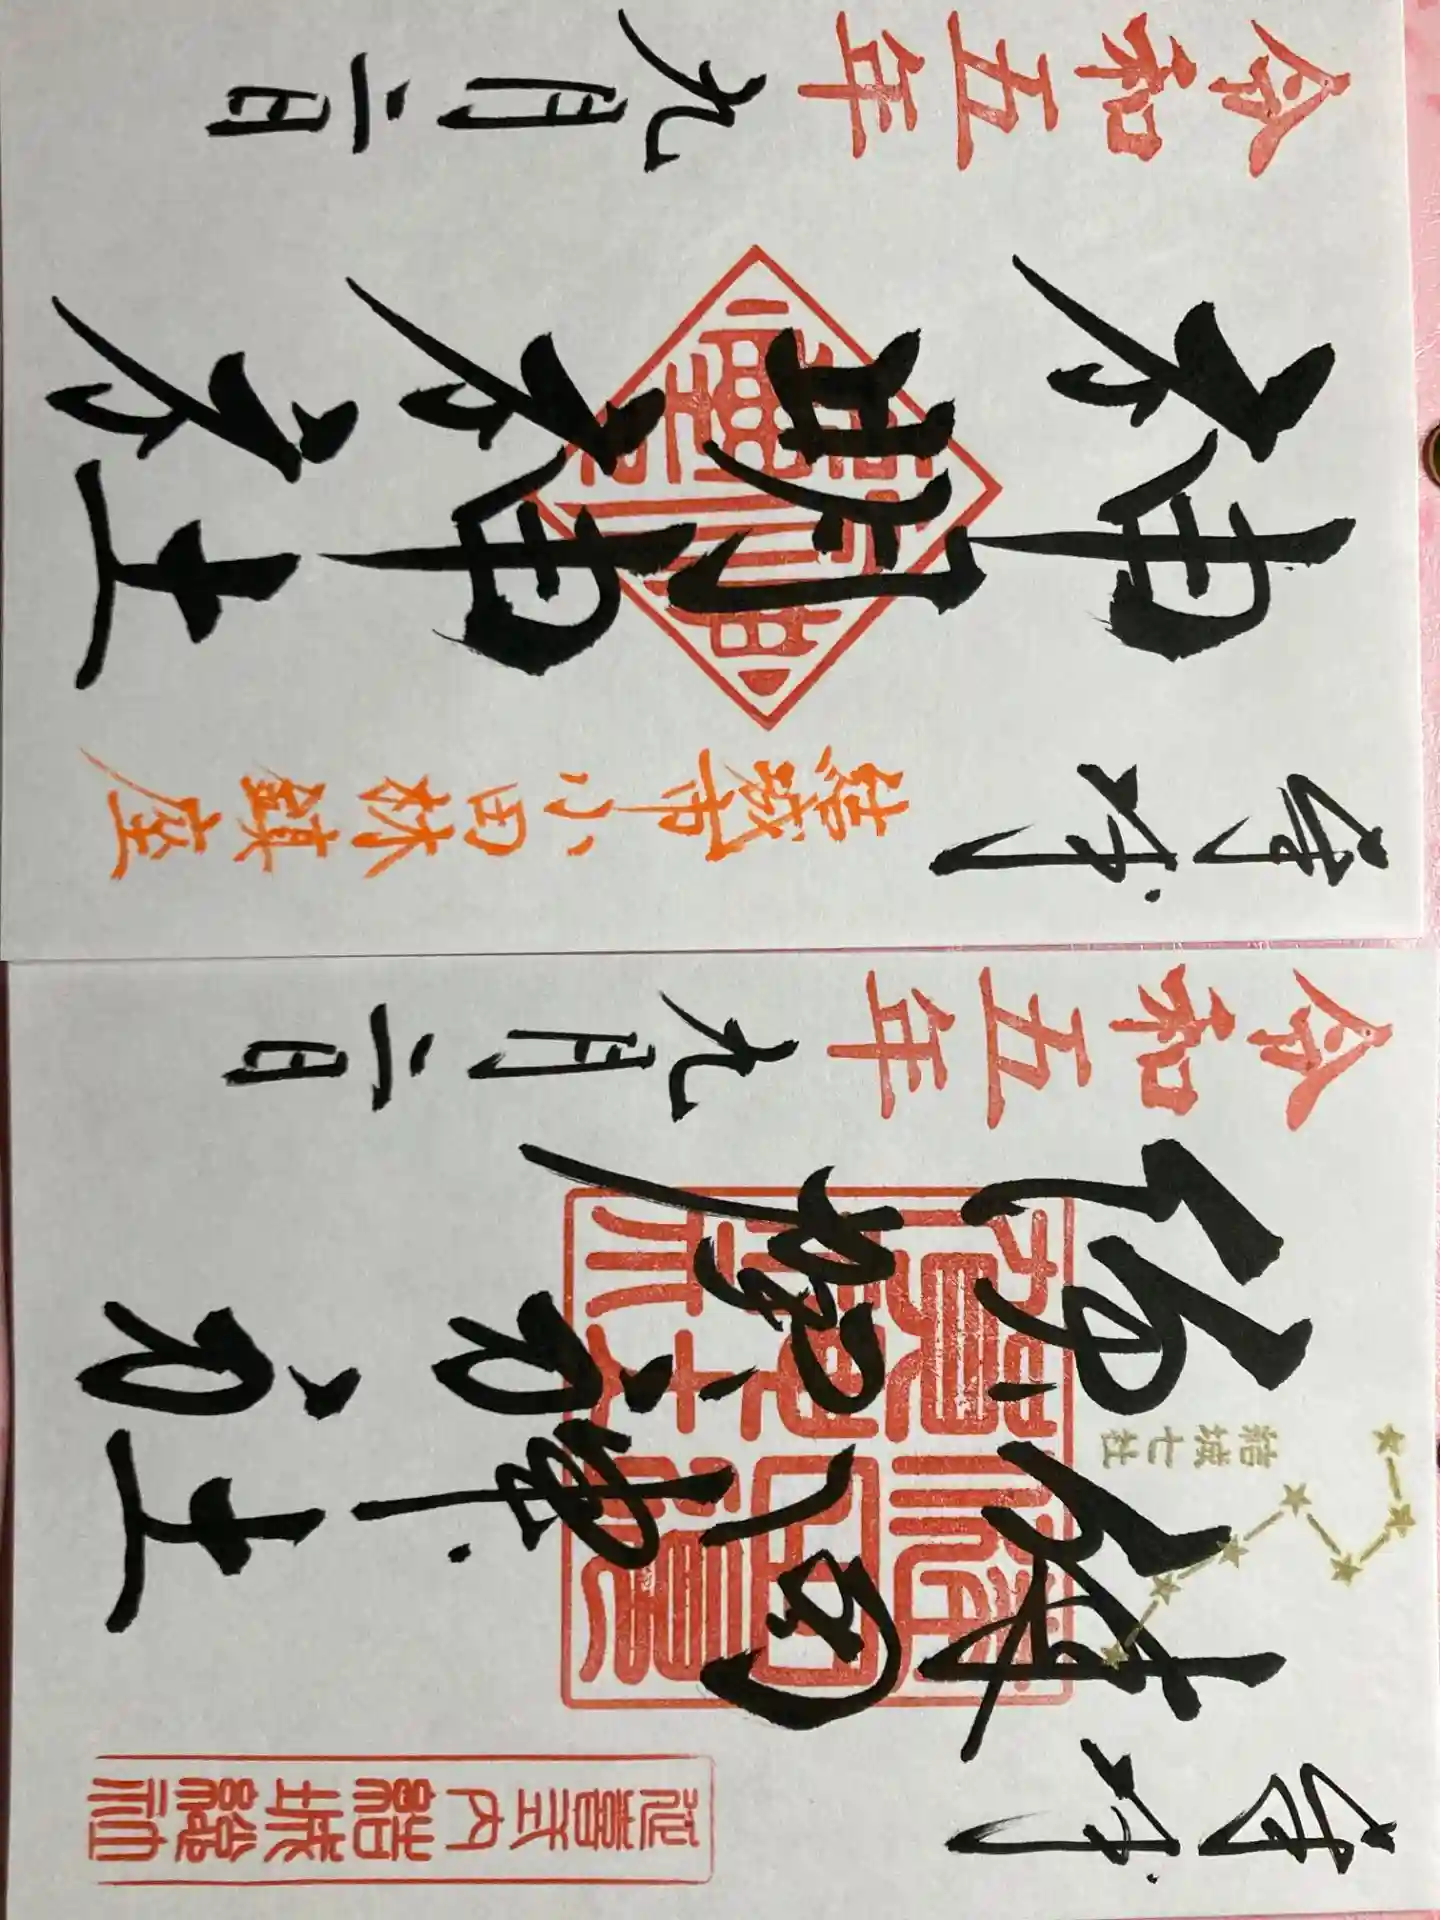 奉拝
結城市小田林鎮座
神明神社
令和五年
九月二日
奉拝
延喜式内結城總社
結城七社
健田
須賀
神社
令和五年
九月二日